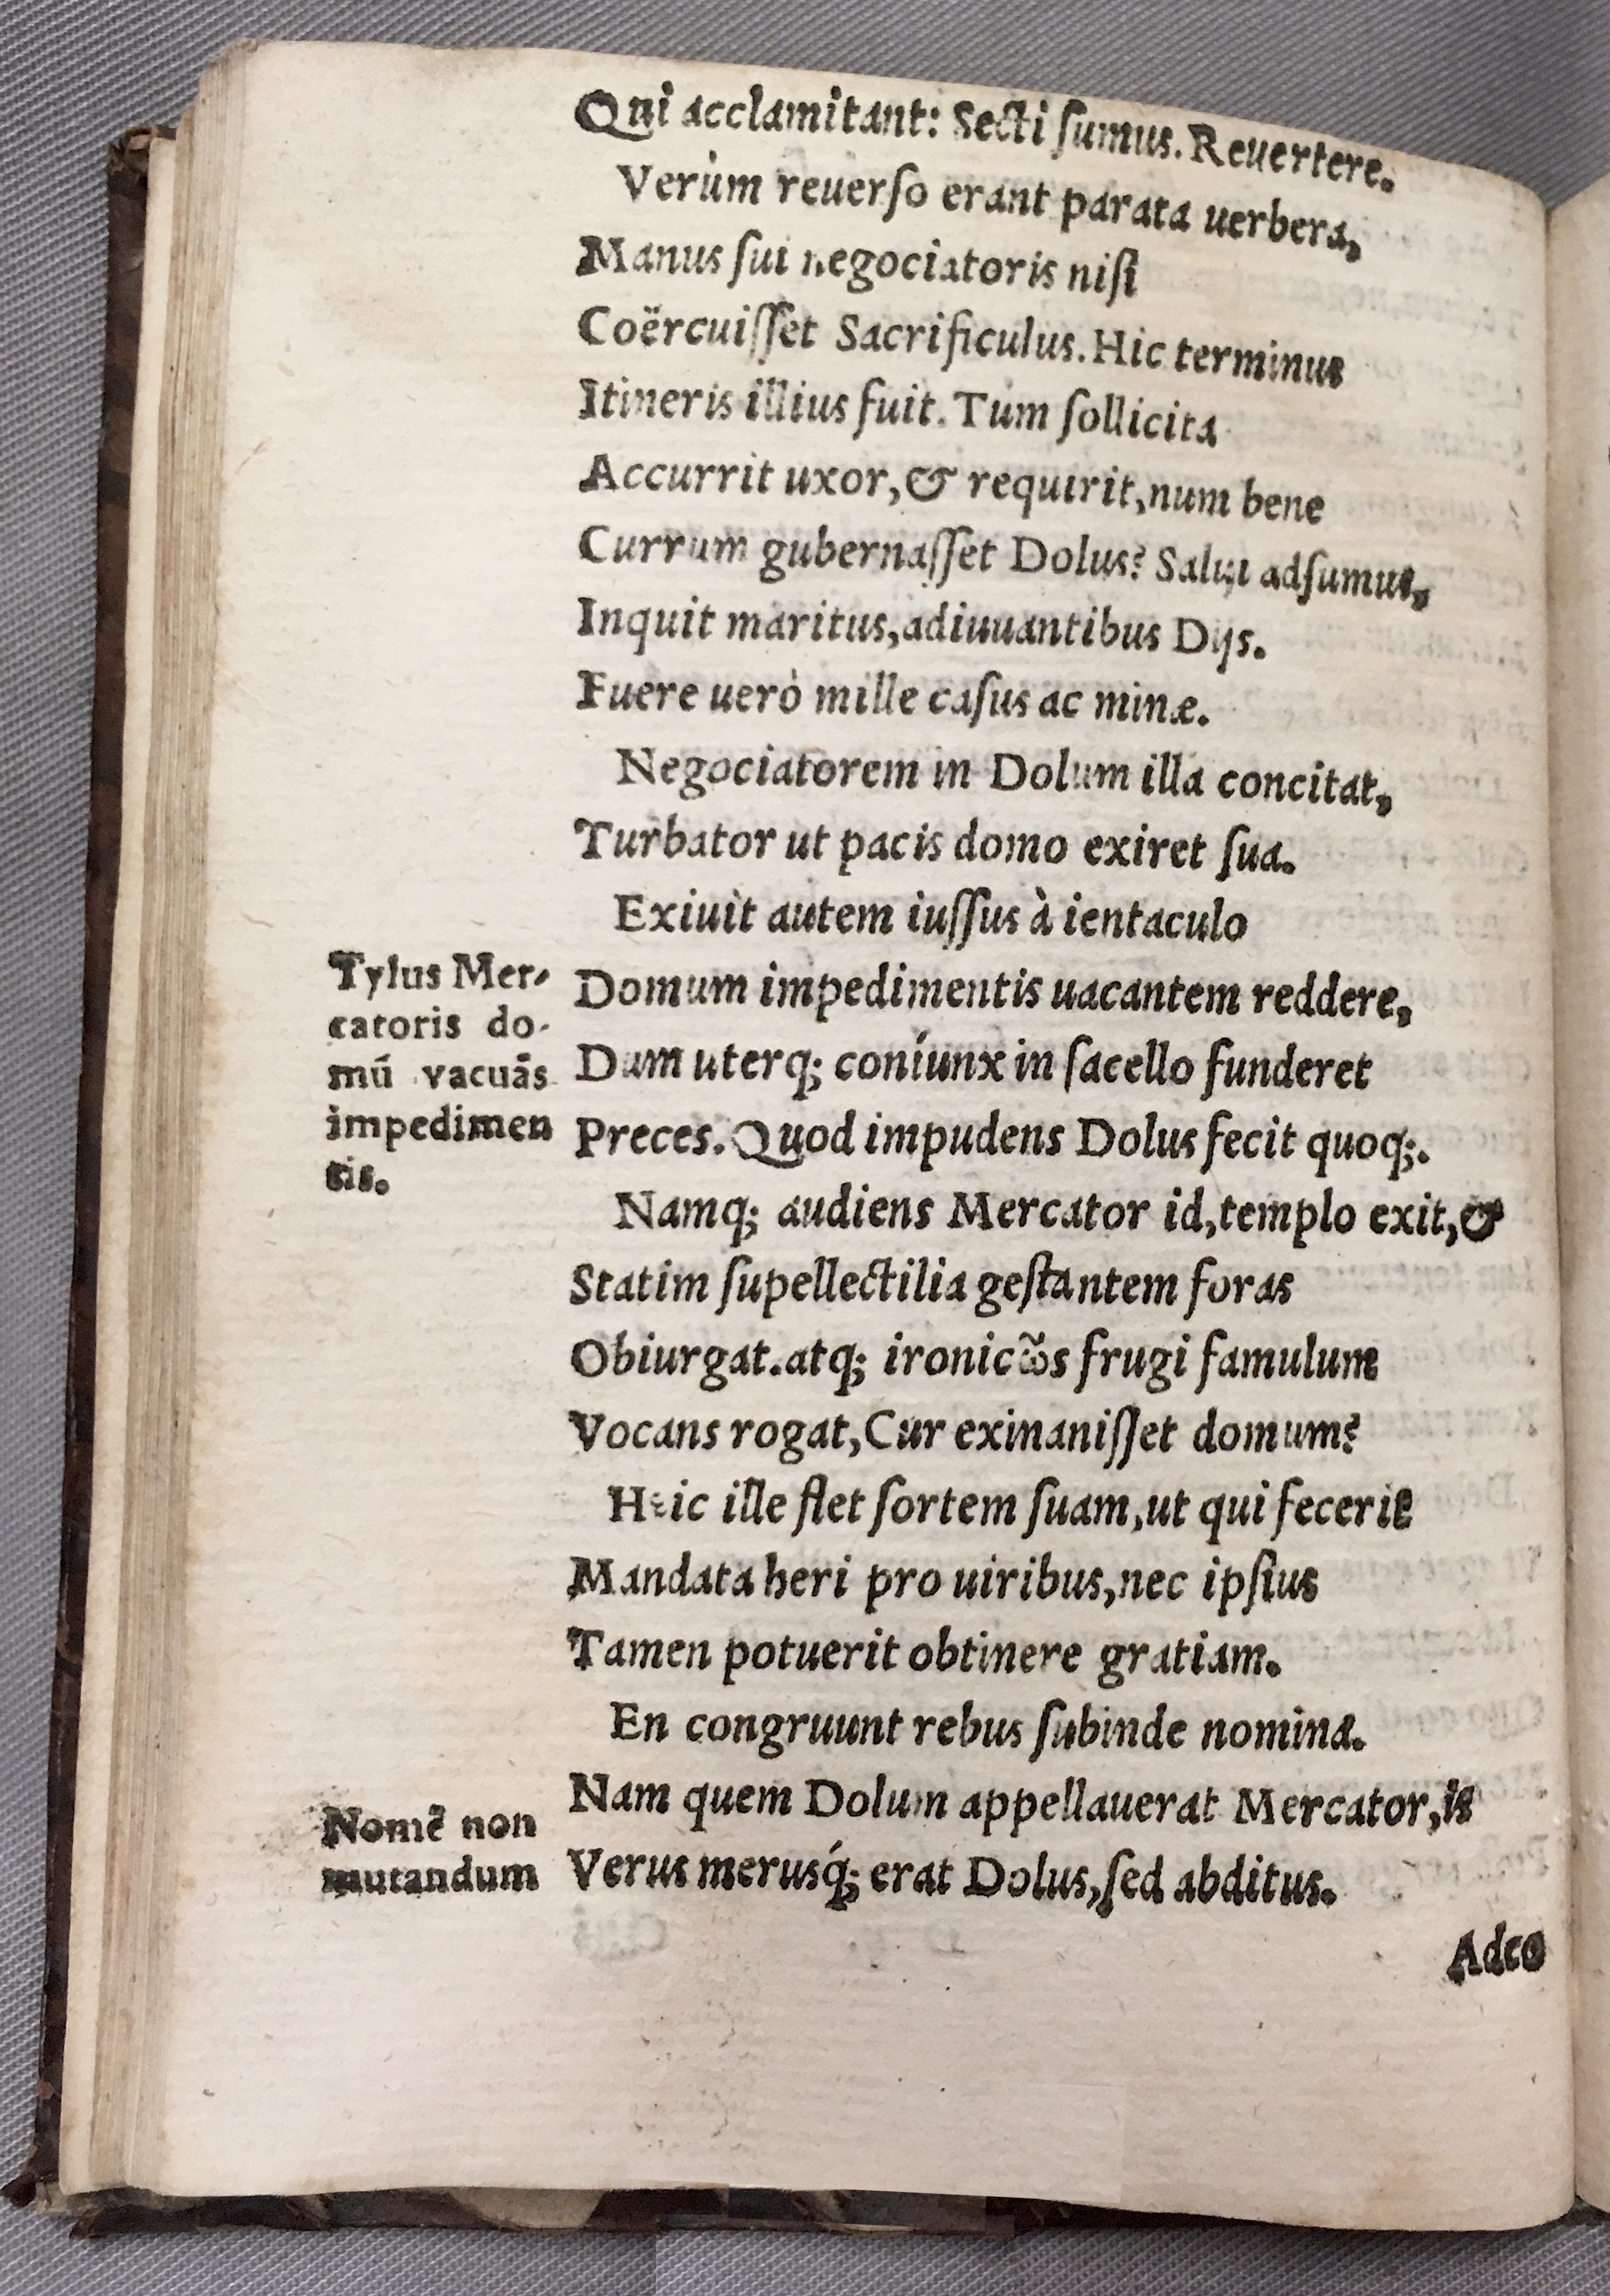 Qui acclamitant: Secti ſumus. Reuertere.
Verùm reuerſo erant parata uerbera,
Manus ſui negociatoris niſi
Coërcuiſſet Sacrificulus. Hic terminus
Itineris illius fuit. Tum ſollicita
Accurrit uxor, & requirit, num bene
Currum gubernaſſet Dolus? Salui adſumus,
Inquit maritus, adiuuantibus Dijs.
Fuere uerò mille caſus ac minæ.
Negociatorem in Dolum illa concitat,
Turbator ut pacis domo exiret ſua.
Exiuit autem iuſſus à ientaculo
Tylus Mer-
catoris do-
mú vacuãs
impedimen
tis.
Domum impedimentis uacantem reddere,
Dum uterq; coníunx in ſacello funderet
Preces. Quod impudens Dolus fecit quoq;.
Namq; audiens Mercator id, templo exit, &
Statim ſupellectilia geſtantem foras
Obiurgat. atq; ironicω̃s frugi famulum
Vocans rogat, Cur exinaniſſet domum?
Heic ille flet ſortem ſuam, ut qui fecerit
Mandata heri pro uiribus, nec ipſius
Tamen potuerit obtinere gratiam.
En congruunt rebus ſubinde nomina.
Nomẽ non
mutandum
Nam quem Dolum appellauerat Mercator, is
Verus merusq́; erat Dolus, ſed abditus.
Adeo